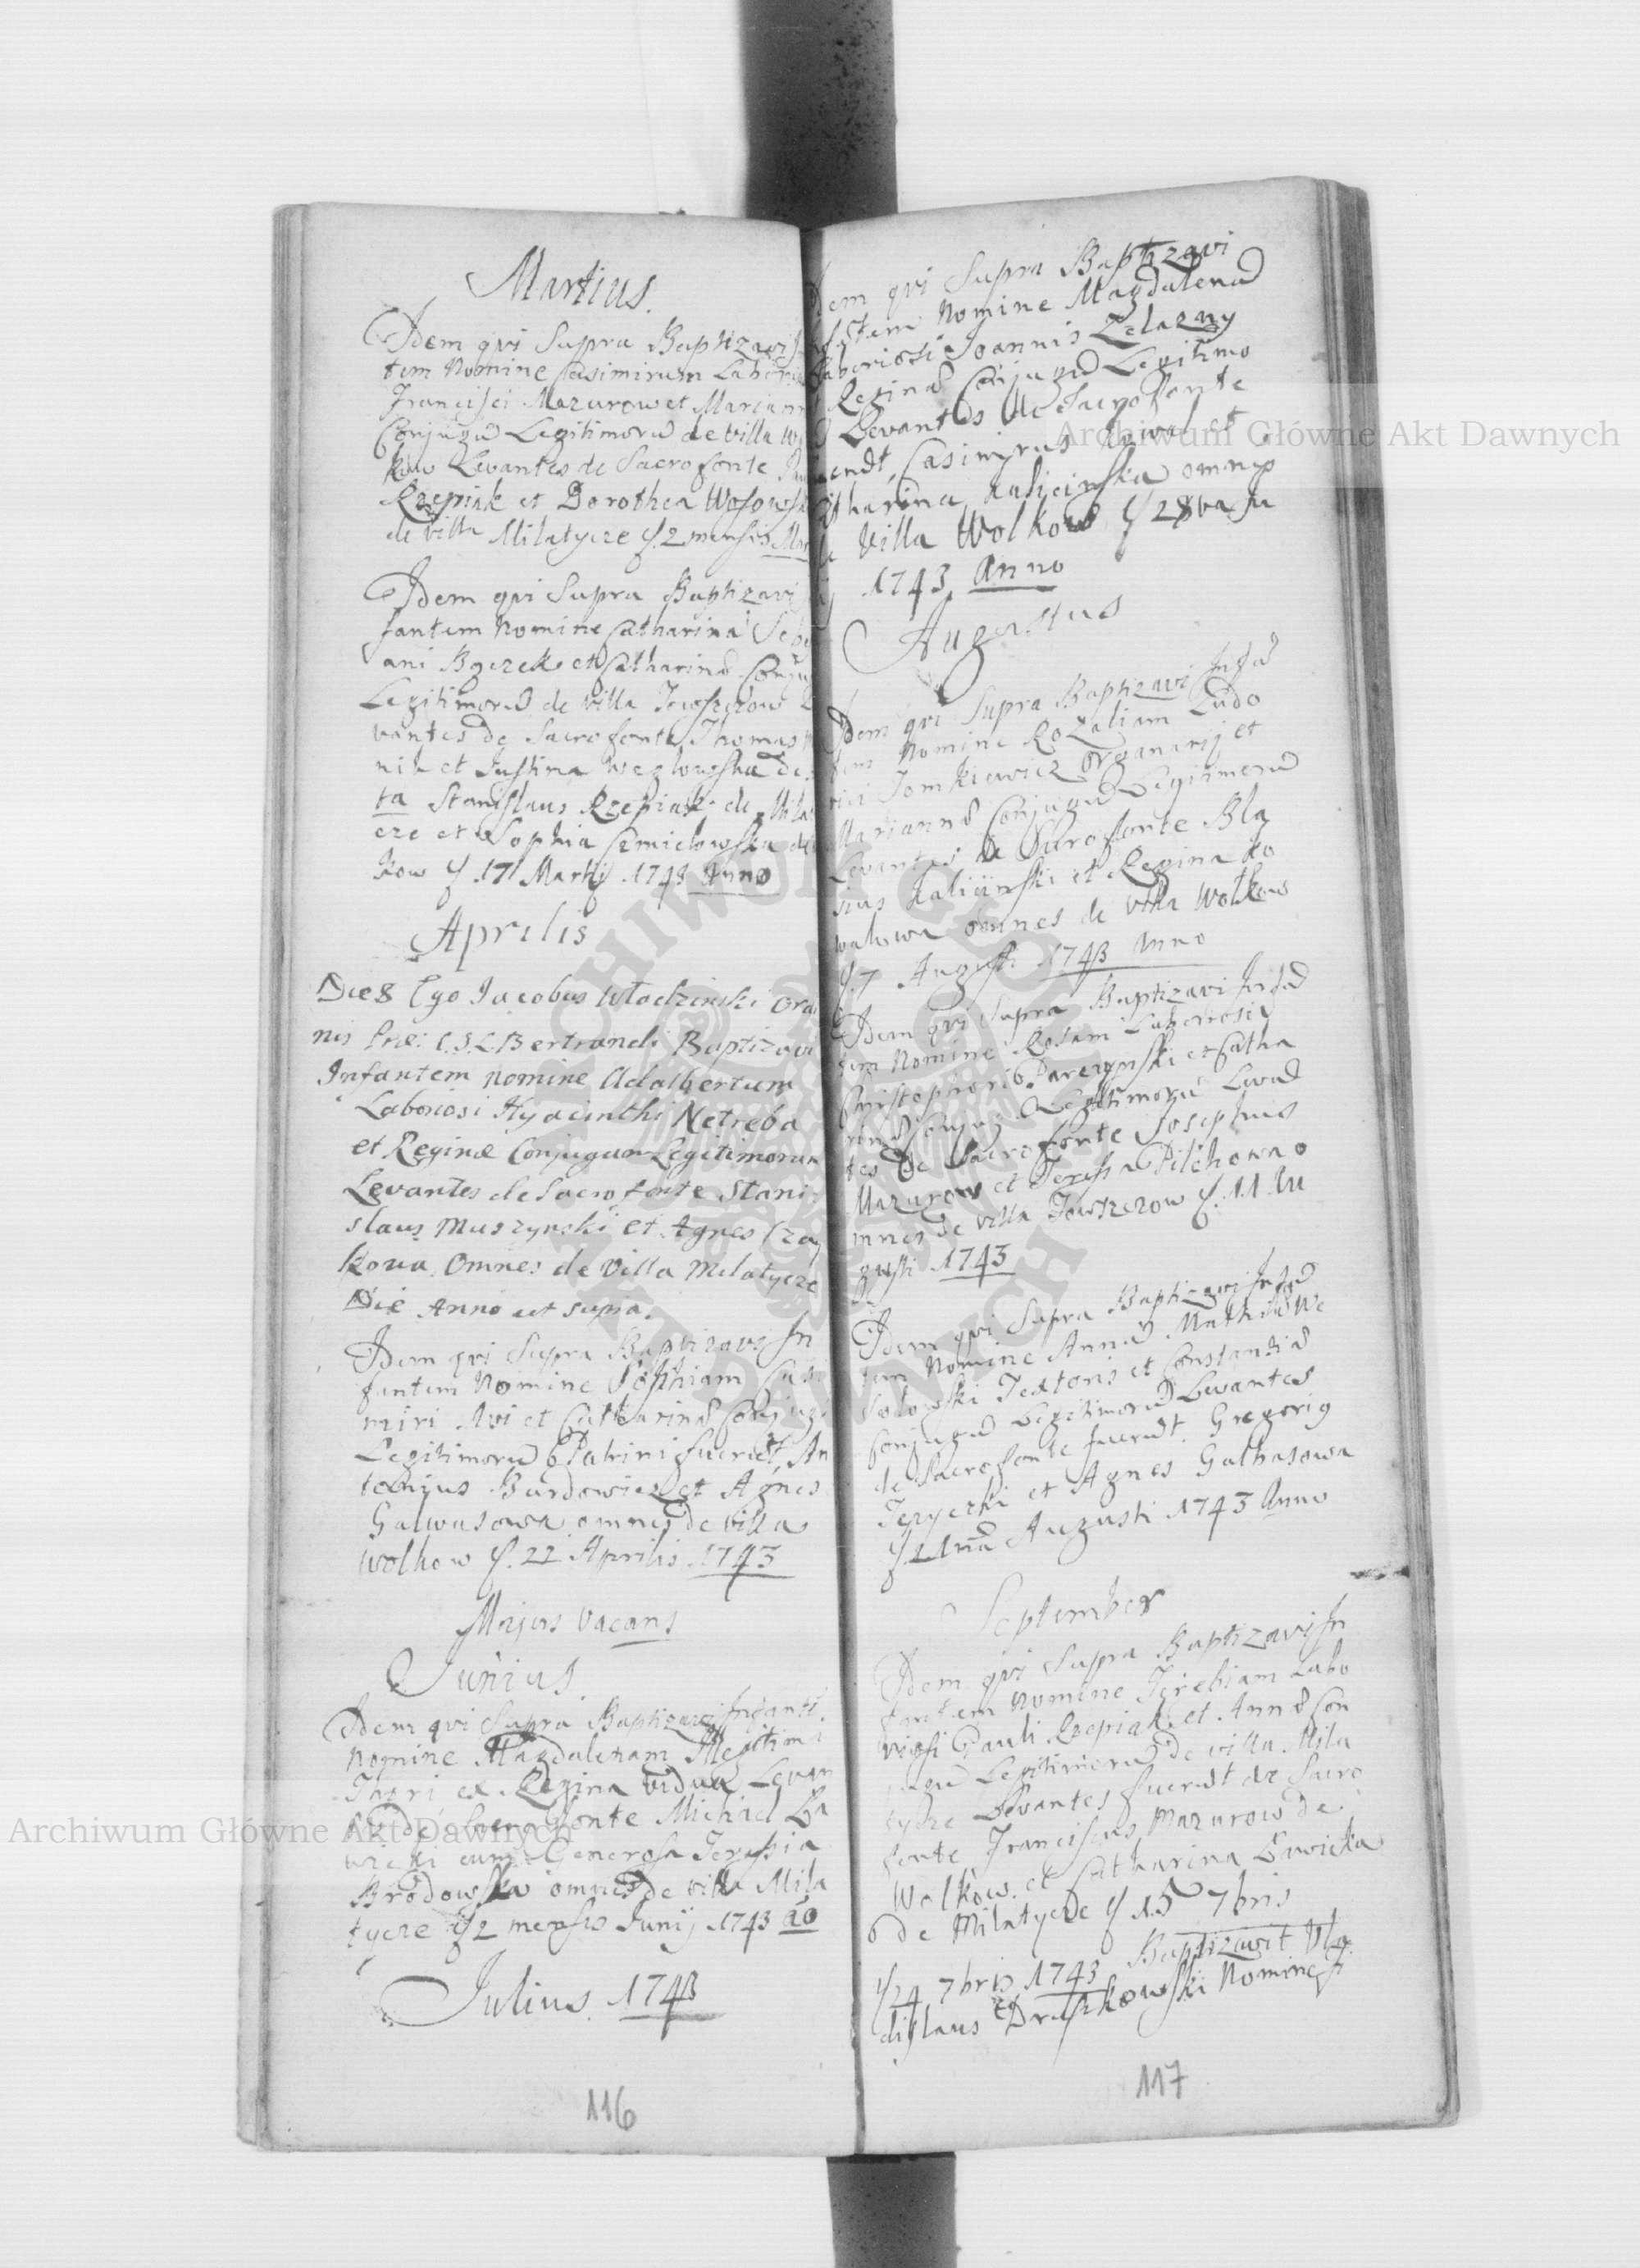 Martius.
Idem qvi Supra Baptizavi In
tem Nomine Casimirum Laborio
Francisci Mazurow et Mariann
Conjugũ Legitimorũ de villa Wo
kow Levantes de Sacro fonte
Rzepiak et Dorothea Wosowsk
de villa Milatycze ſ. 2 mensis Mar
Idem qvi Supra Baptizavi
fantem Nomine Catharinã Seb
ani Bączek et Catharinæ Conju
Legitimorũ de villa Jowszczow
vantes de Sacro fonte Thomas
nik et Justina
ta Stanislaus Rzepiak de Mila
cze et Sophia Czmielowska de
kow ſ 17 Martij 1743 Anno
Aprilis
Die 8 Ego Jacobus Włodzinski Ord
nis Præ: C. S. L Bertrandi Baptizavi
Infantem nomine Adalbertum
Laboriosi Hyacinthi Netreba
et Reginæ Conjugum Legitimorum
Levantes de Sacro fonte Stani-
slaus Muszynski et Agnes Cza
kowa Omnes de Villa Milatycze
Die Anno ut supra.
Idem qvi Supra Baptizavi In
fantem Nomine Sophiam Casi
miri Avi et Catharinæ Conjugũ
Legitimorũ Patrini fuerũt An
tonius Burdowicz et Agnes
Galwasowa omnes de villa
Wolkow ſ. 22 Aprilis 1743
Majus vacans
Junius
Idem qvi Supra Baptizavi Infantẽ
Nomine Magdalenam Illegitimi
Thori ex Regina vidua Levan
de Sacro fonte Michael Ła
wicki cum Generosa Teressia
Brodowska omnes de villa Mila
tycze ſ 2 mensis Junij 1743 ao
Julius 1743
116
Idem qvi Supra Baptizavi
fantem Nomine Magdalenã
Laboriosi Joannis Zelazny
Reginæ Conjugũ Legitimo
Levantes de Sacro fonte
Casimirus Kowal et
Catharina Kalicinska omnes
de Villa Wolkow ſ 28va Ju
1743 Anno
Augustus
Idem qvi Supra Baptizavi Infã
tem Nomine Rozaliam Ludo
vici Tomkiewicz Organarij et
Mariannæ Conjugũ Legitimorũ
Levantes de Sacro fonte Bla
sius Kaliciński et Regina Ko
walowa omnes de villa Wolkow
ſ. 7 Augusti 1743 Anno
Idem qvi Supra Baptizavi Infã
tem Nomine Rosam Laboriosi
Christophori Parczynski et Catha
rinæ Conjug Legitimorũ Levã
tes de Sacro fonte Josephus
Mazurow et Teressa Pilchowa o
mnes de villa Jowszczow ſ. 11 Au
gusti 1743
Idem qvi Supra Baptizavi Infã
tem Nomine Annã Mathiæ We
solowski Textoris et Constantiæ
Conjugũ Legitimorũ Levantes
de Sacro fonte fuerũt Gregorig
Jerzecki et Agnes Galhasowa
ſ 21ma Augusti 1743 Anno
September
Idem qvi Supra Baptizavi In
fantem Nomine Terehiam Labo
riosi Pauli Rzepiak et Annæ Con
jugũ Legitimorũ de villa Mila
tycze Levantes fuerũt de Sacro
fonte Franciscus Mazurow de
Wolkow et Catharina Ławicka
de Milatycze ſ 15 7bris
ſ 24 7bris 1743 Baptizavit Vla
dislaus Druszkowski Nomine
117
Archiwum Główne Akt Dawnych
Archiwum Główne Akt Dawnych
ARCHIWUM GŁÓWNE AKT DAWNYCH